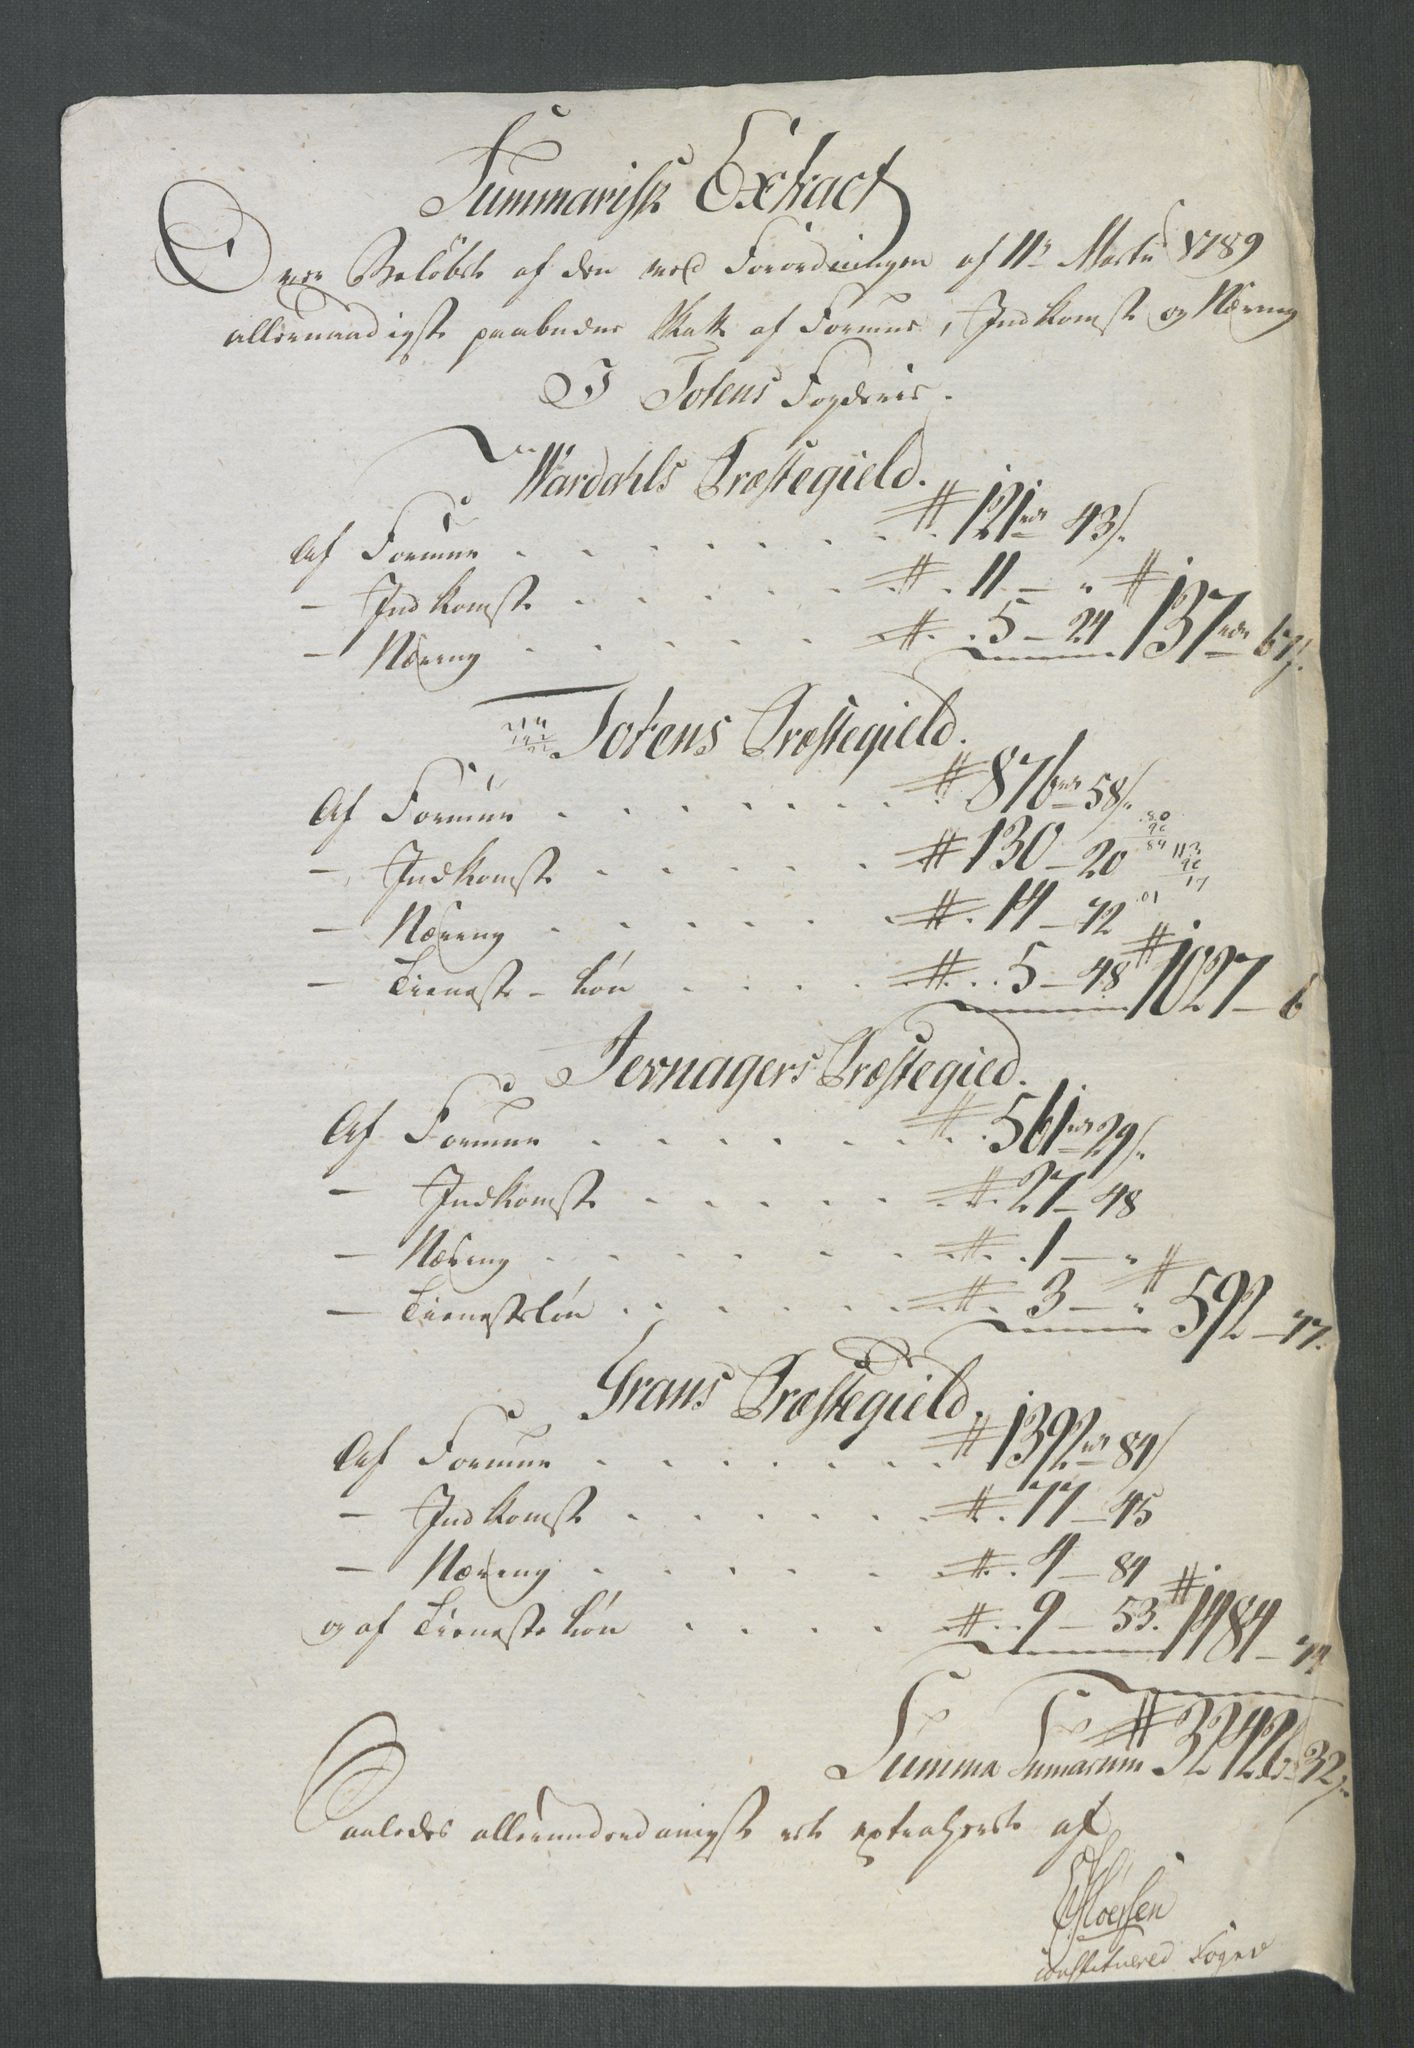 Summarisk Extract
Over Beløbet af den ved Forordningen af 11te Martii 1789
allernaadigst paabudne Skatt af Formue, Indkomst og Næring
I Totens Fogderie.
Wardahls Præstegield.
Af Formue . . . . . . . # 121 rdr 43 s.
— Indkomst . . . . . # 11 — "
— Næring . . . . . # 5 — 24 # 137 rdr 67 s.
Totens Præstegield.
Af Formue . . . . . . . # 876 rdr 58 s.
— Indkomst . . . . . # 130 — 20
— Næring . . . . . # 14 — 72
— Tieneste-Løn . . . . # 5 — 48 # 1027 — 6
Jevnagers Præstegied.
Af Formue . . . . . . . # 561 rdr 29 s.
— Indkomst . . . . . # 27 — 48
— Næring . . . . . . # 1 — "
— Tienesteløn . . . . . # 3 — " # 592 — 77.
Grans Præstegield.
Af Formue . . . . . . . # 1392 rdr 84 s
— Indkomst . . . . . # 77 — 45
— Næring . . . . . # 4 — 84
og af Tieneste Løn . . . . # 9 — 53. # 1484 — 74
Summa Sumarum # 3242 rdr 32 s.
Saaledes allerunderdanigst rett extraheret af
constituered Foged